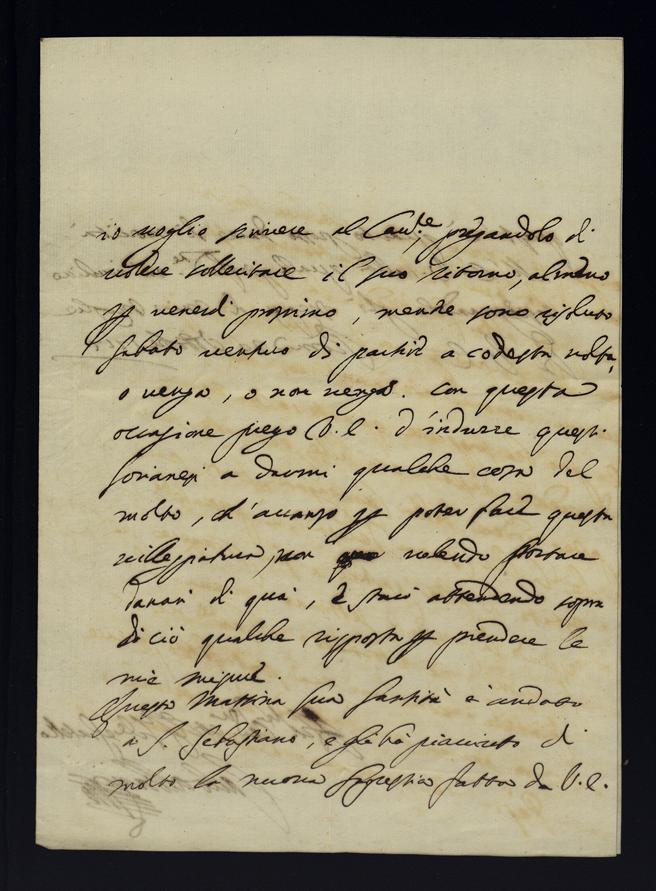 io voglio scrivere al Cau.re, pregandolo di
volere sollecitare il suo ritorno, almeno
p venerdi prossimo, mentre sono risoluto
sabato venturo di partire a codesta volta,
o venga, o non venga. con questa
occasione prego V.S. d'indurre questi
Sorianesi a darmi qualche cosa del
molto, ch'avanzo p poter fare questa
villeggiatura, non volendo portare
danari di quà, e starò attendendo sopra
di ciò qualche risposta p prendere le
mie misure.
Questa Mattina Sua Santità è andato
a S. Sebastiano, e gl'hà piaciuto di
molto la nuova sagrestia fatta da V.S.